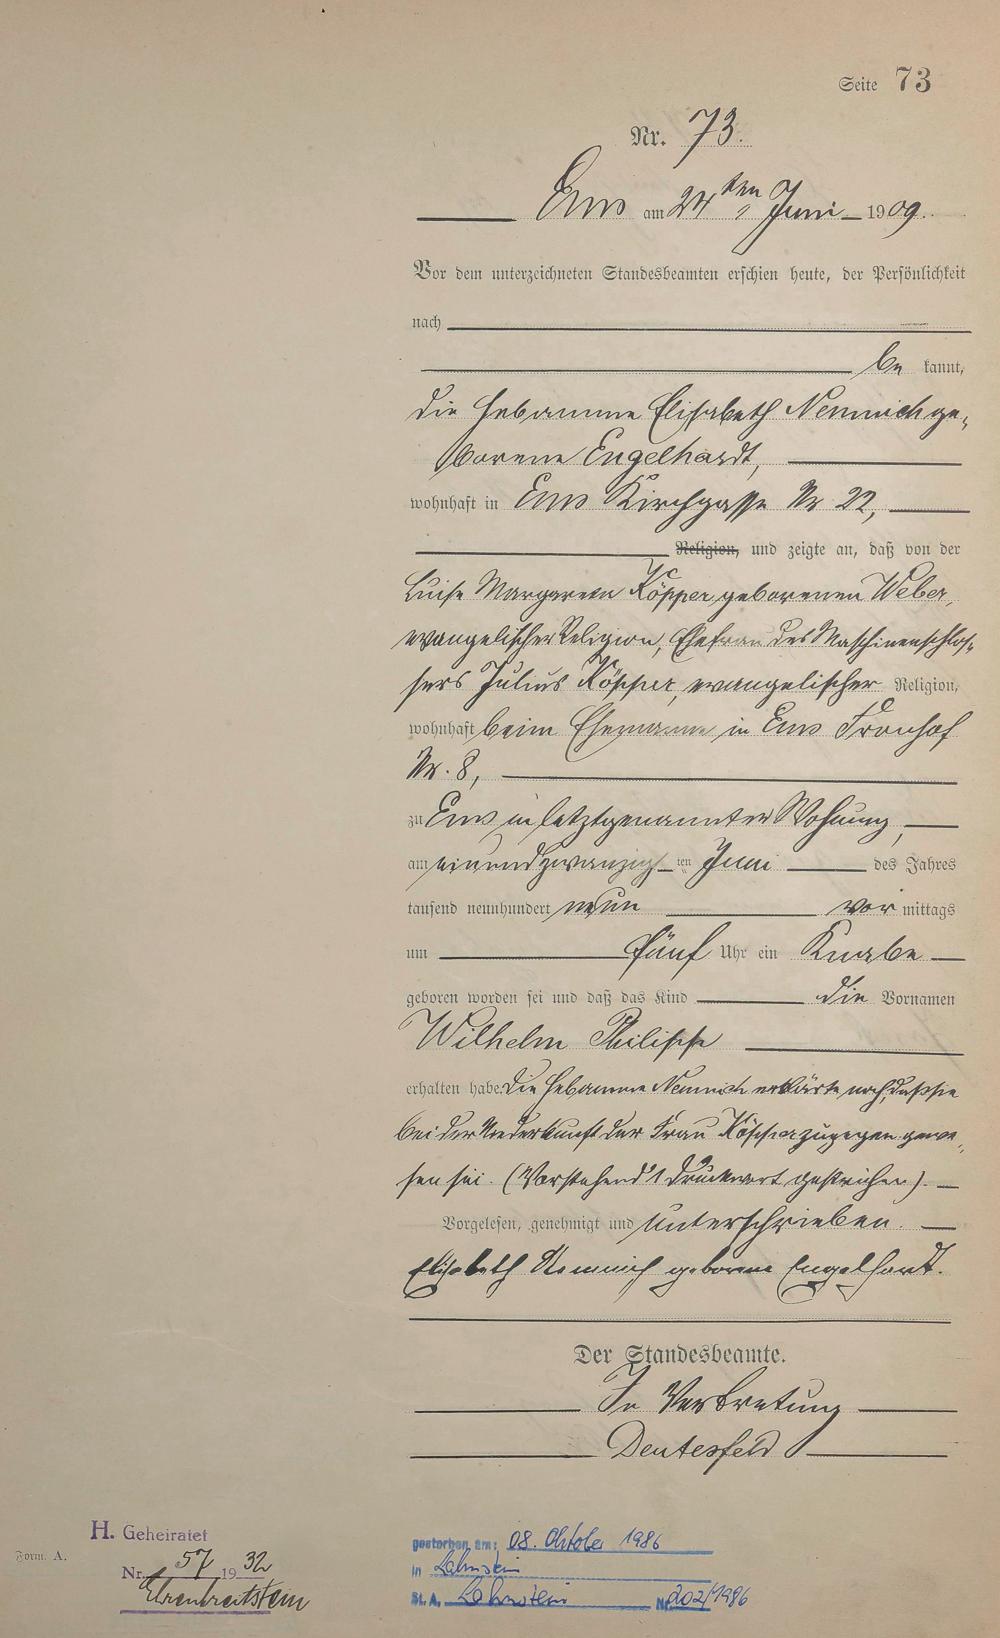 Seite 73
Nr. 73.
Ems am 24ten Juni 1909.
Vor dem unterzeichneten Standesbeamten erschien heute, der Persönlichkeit
nach
be kannt,
die Hebamme Elisabeth Nemnich ge-
borene Engelhardt,
wohnhaft in Ems Kirchgasse Nr 22,
Religion, und zeigte an, daß von der
Luise Margareta Köpper geborenen Weber,
evangelischer Religion, Ehefrau des Maschinenschlos-
sers Julius Köpper, evangelischer Religion,
wohnhaft beim Ehemanne in Ems Fronhof
Nr. 8,
zu Ems in letztgenannter Wohnung,
am einundzwanzig ten Juni des Jahres
tausend neunhundert neun vor mittags
um fünf Uhr ein Knabe
geboren worden sei und daß das Kind die Vornamen
Wilhelm Philipp
erhalten habe. Die Hebamme Nemnich erklärte noch, daß sie
bei der Niederkunft der Frau Köpper zugegen gewe-
sen sei. (Vorstehend 1 Druckwort gestrichen).
Vorgelesen, genehmigt und unterschrieben.
Elisabeth Nemnich geborene Engelhardt.
Der Standesbeamte.
In Vertretung
Deutesfeld
H. Geheiratet
Nr. 57 1932
Ehrenbreitstein
Form. A.
gestorben am: 08. Oktober 1986
in Lahnstein
St. A. Lahnstein Nr. 202/1986